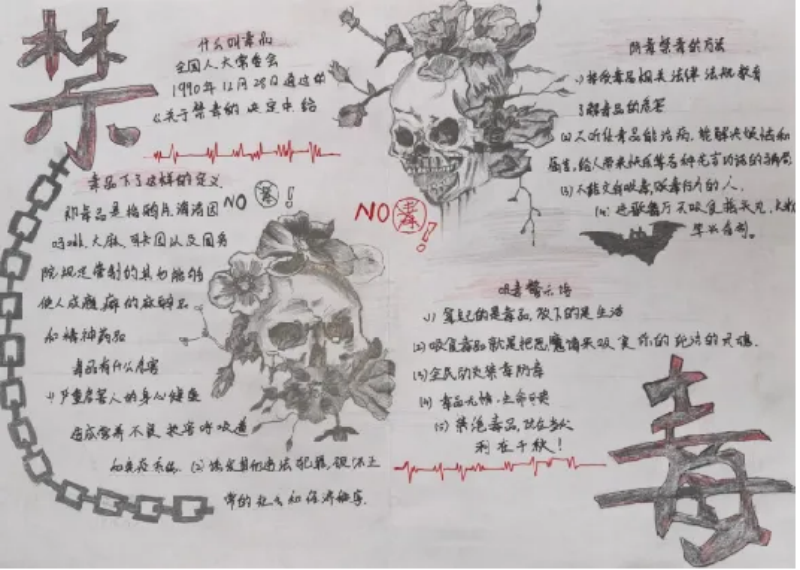 禁
什么叫毒品
全国人大常委会
1990年12月28日通过的
《关于禁毒的决定中给
毒品下了这样的定义
即毒品是指鸦片海洛因
吗啡、大麻、可卡因以及国务
院规定管制的其它能够
使人成瘾癖的麻醉品
和精神药品
毒品有什么危害
(1)严重危害人的身心健康
造成营养不良损害呼吸道
和免疫系统. (2)诱发其他违法犯罪,破坏正
常的社会和经济秩序.
NO 毒!
NO 毒!
防毒禁毒的方法
(1)接受毒品相关法律法规教育
了解毒品的危害
(2)不听信毒品能治病,能解决烦恼和
给人带来快乐等各种
(3)不能 吸毒,贩毒行为的人.
(4)进歌舞厅不吸食摇头丸,
吸毒警示语
(1)拿起的是毒品,放下的是生活
(2)吸食毒品就是把恶魔请来吸食你的 的灵魂.
(3)全民动员禁毒防毒
(4)毒品无情,生命可贵
(5)禁绝毒品,功在当代
利在千秋!
毒